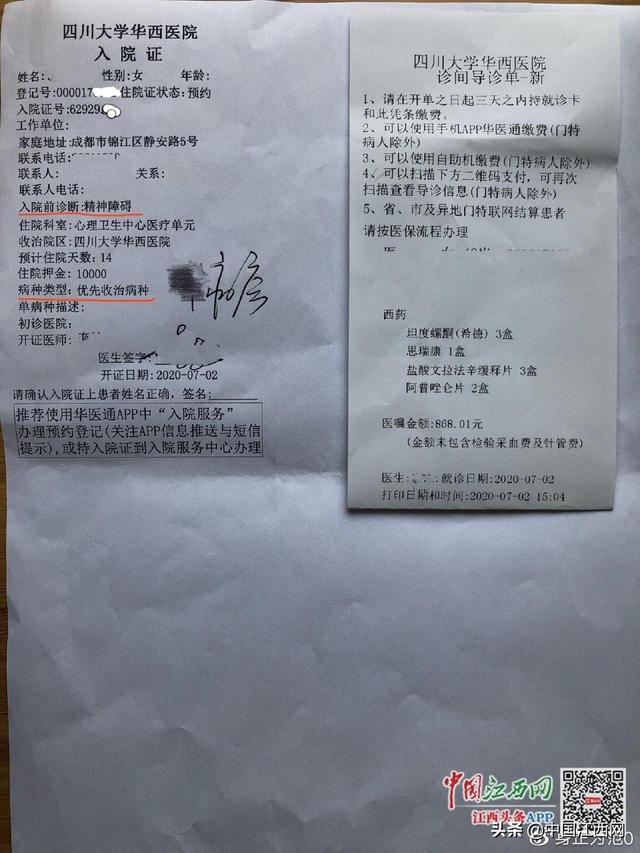 四川大学华西医院
入 院 证
姓名: 性别:女 年龄:
登记号:000017 住院证状态:预约
入院证号:62929
工作单位:
家庭地址:成都市锦江区静安路5号
联系电话:
联系人: 关系:
联系人电话:
入院前诊断:精神障碍
住院科室:心理卫生中心医疗单元
收治院区:四川大学华西医院
预计住院天数:14
住院押金:10000
病种类型:优先收治病种
单病种描述:
初诊医院:
开证医师:
医生签字:
开证日期:2020-07-02
请确认入院证上患者姓名正确,签名:
推荐使用华医通APP中“入院服务”
办理预约登记(关注APP信息推送与短信
提示),或持入院证到入院服务中心办理
四川大学华西医院
诊间导诊单-新
1、请在开单之日起三天之内持就诊卡
和此凭条缴费。
2、可以使用手机APP华医通缴费(门特
病人除外)
3、可以使用自助机缴费(门特病人除外)
4、可以扫描下方二维码支付,可再次
扫描查看导诊信息(门特病人除外)
5、省、市及异地门特联网结算患者
请按医保流程办理
西药
坦度螺酮(希德) 3盒
思瑞康 1盒
盐酸文拉法辛缓释片 3盒
阿普唑仑片 2盒
医嘱金额:868.01元
(金额未包含检验采血费及针管费)
医生: 就诊日期:2020-07-02
打印日期和时间:2020-07-02 15:04
中国江西网
江西头条APP
头条 @中国江西网
@身正为范0